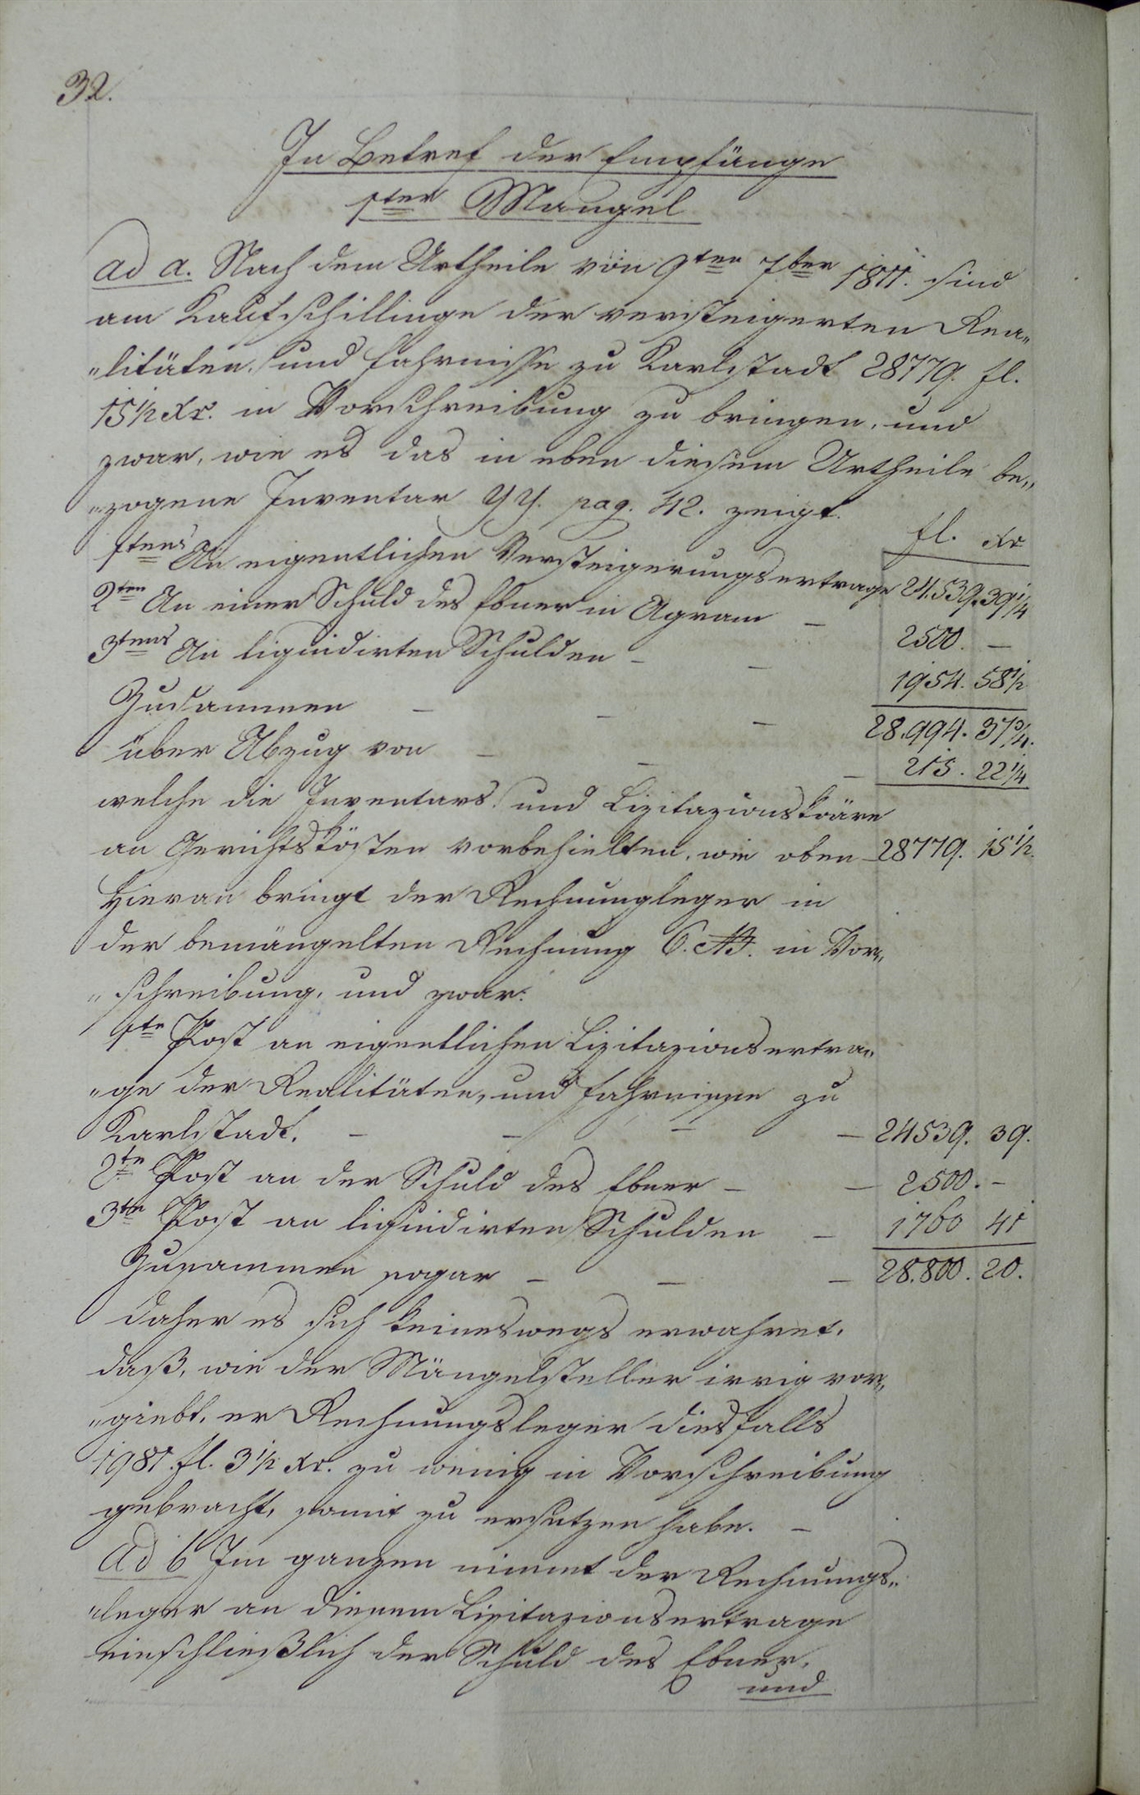 32.
In Betref der Empfänge
1ter Mangel
ad a. Nach dem Urtheile von 9ten 7ber 1811. sind
am Kaufschillinge der versteigerten Rea„
„litäten, und Fahrnisse zu Karlstadt 28779. fl.
15 1/2 Xr. in Vorschreibung zu bringen, und
zwar, wie es das in eben diesem Urtheile be„
„zogene Inventar YY. pag. 42. zeigt.
fl. Xr
1tens An eigentlichen Versteigerungsertrage 24.539. 39 1/4
2ten An einer Schuld des Ebner in Agram – 2500. –
3tens An liquidirten Schulden – – 1954. 58 1/2
Zusammen – – – 28.994. 37 3/4.
über Abzug von – – – 215. 22 1/4
welche die Inventars- und Lizitazionskoäre
an Gerichtskösten vorbehielten, wie oben – 28779. 15 1/2.
Hieran bringt der Rechnungleger in
der bemängelten Rechnung 6. in Vor„
„schreibung, und zwar:
1te Post an eigentlichen Lizitazionsertra„
„ge der Realitäten, und Fahrnisse zu
Karlstadt. – – – – 24539. 39.
2te Post an der Schuld des Ebner – – 2500. –
3te Post an liquidirten Schulden – 1760 41
Zusammen sogar – – – 28.800. 20.
daher es sich keineswegs erwahret,
daß, wie der Mängelsteller irrig vor„
„giebt, er Rechnungsleger diesfalls
1981. fl. 3 1/2 Xr. zu wenig in Vorschreibung
gebracht, somit zu ersetzen habe. –
Ad b Im ganzen nimmt der Rechnungs„
„leger an diesem Lizitazionsertrage
einschließlich der Schuld des Ebner,
und